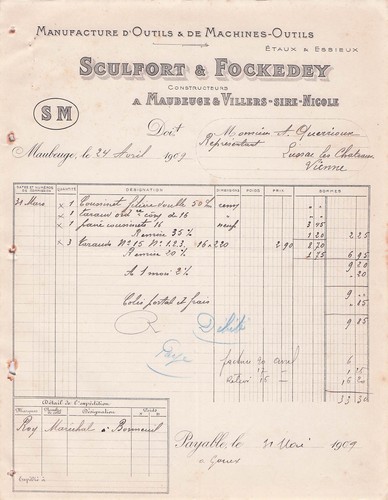 MANUFACTURE D'OUTILS & DE MACHINES-OUTILS
ÉTAUX & ESSIEUX
SCULFORT & FOCKEDEY
CONSTRUCTEURS
A MAUBEUGE & VILLERS-SIRE-NICOLE
SM
Doit Monsieur A. Guerrioux
Représentant Lussac les Chateaux
Vienne
Maubeuge, le 24 Avril 1909
DATES ET NUMÉROS DU COMMANDE QUANTITÉ DÉSIGNATION DIMENSIONS POIDS PRIX SOMMES
31 Mars x 1 Coussinet filière double
x 1 taraud 16
x 1 paire coussinets 16 neuf 3 45
Remise 35 % 1 20 2 25
x 3 Tarauds No 15 No 1 2 3 16 - 220 2 90 8 70
Remise 20 % 1 75 6 95
9 20
A 1 mois 2 % - 20
9 --
Colis postal et frais - 85
R Débité 9 85
Payé
facture 20 avril
16 20
33 30
Détail de l'expédition
Marques Désignation Poids
Roy Maréchal à Bonneuil
Payable, le 31 Mai 1909
Empilé à